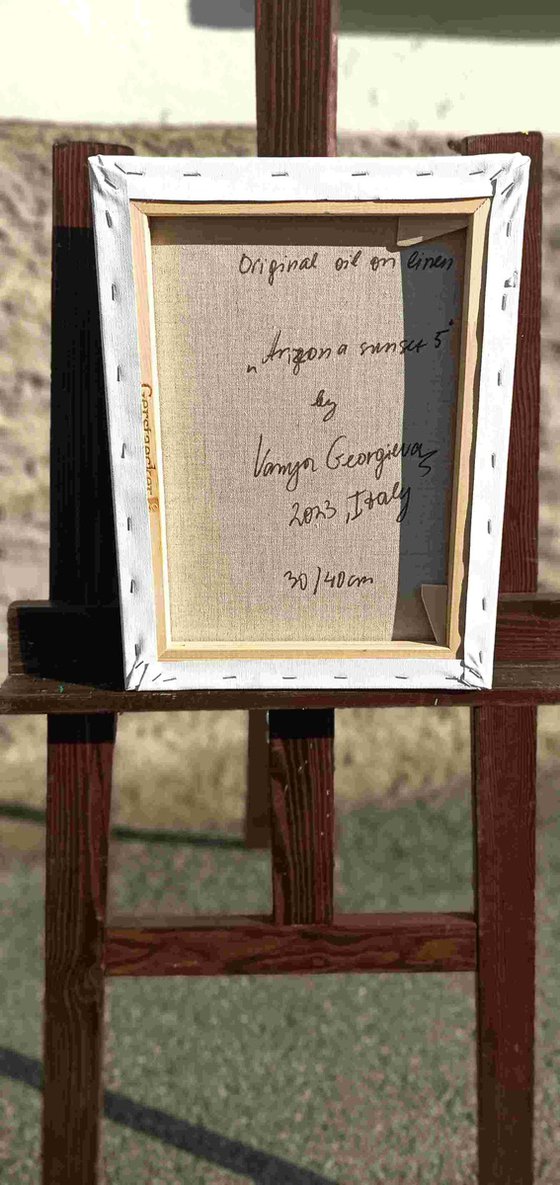 Original oil on linen
„Arizona sunset 5"
by
Vanya Georgieva
2023, Italy
30/40cm
Gerstaecker